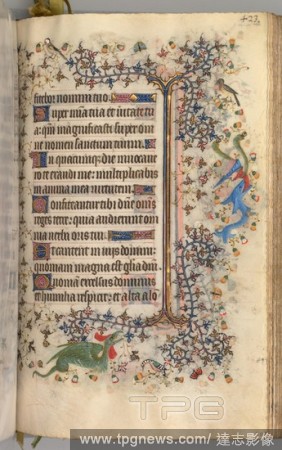 423
fitebor nomini tuo.
Super mia tua et veritate tu
a: qm magnificasti super om
ne nomen sanctum tuum.
In quacumqz die invocave
ro te exaudi me: multiplicabis
in anima mea virtutem.
Confiteantur tibi dne oms
reges terre: quia audierunt om
nia verba oris tui.
Et cantent in viis domini:
quoniam magna est glia dni.
Quoniam excelsus dominus
et humilia respicit: et alta a lo
TPG
www.tpgnews.com/ 達志影像